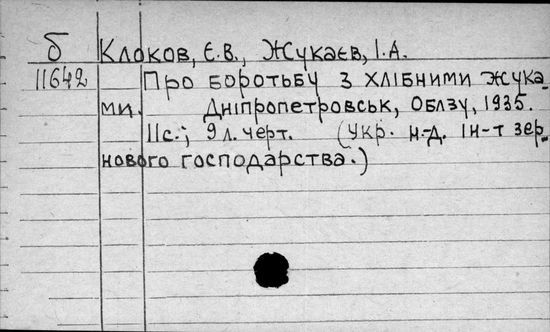 б Клоков, Є.В., Жукаєв, І.А.
11642 Про боротьбу з хлібними жука-
ми. Дніпропетровськ, Облзу, 1935.
11с.; 9 л. черт. (Укр. н.-д. Ін-т зер-
нового господарства.)